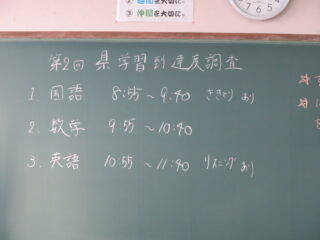 ② 時間を大切に。
③ 仲間を大切に。
第2回 県学習到達度調査
1. 国語 8:55 ～ 9:40 ききとりあり
2. 数学 9:55 ～ 10:40
3. 英語 10:55 ～ 11:40 リスニングあり